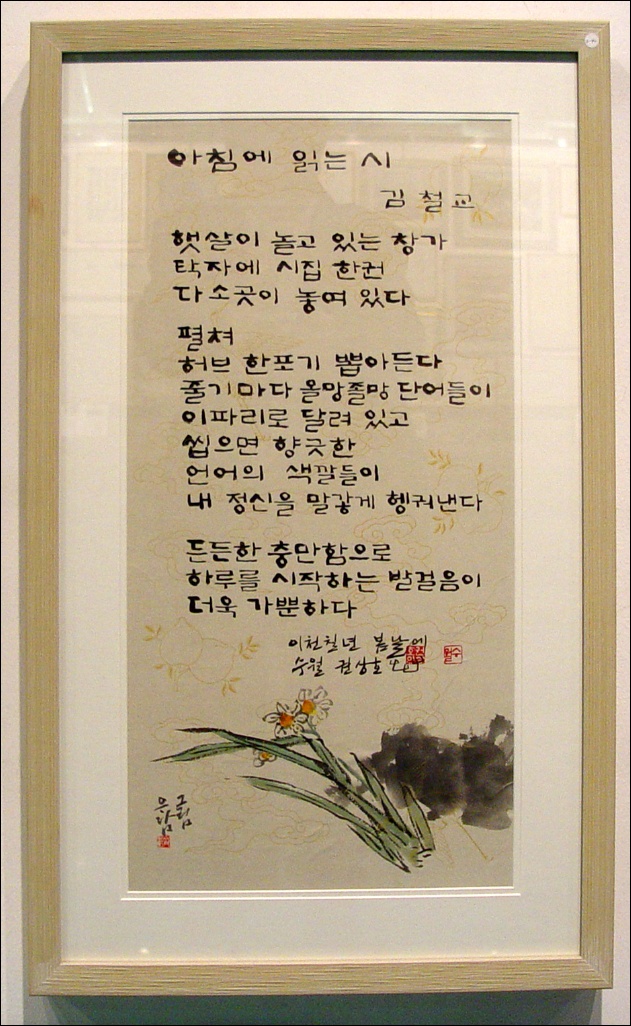 아침에 읽는 시
김철교
햇살이 놀고 있는 창가
탁자에 시집 한권
다소곳이 놓여 있다
펼쳐
허브 한포기 뽑아든다
줄기마다 올망졸망 단어들이
이파리로 달려 있고
씹으면 향긋한
언어의 색깔들이
내 정신을 말갛게 헹궈낸다
든든한 충만함으로
하루를 시작하는 발걸음이
더욱 가뿐하다
이천칠년 봄날에
수월 권상호
그림